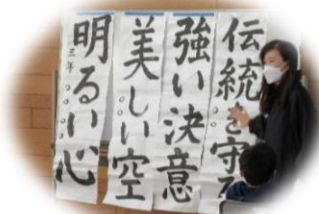 伝統を守る
強い決意
美しい空
明るい心
三年